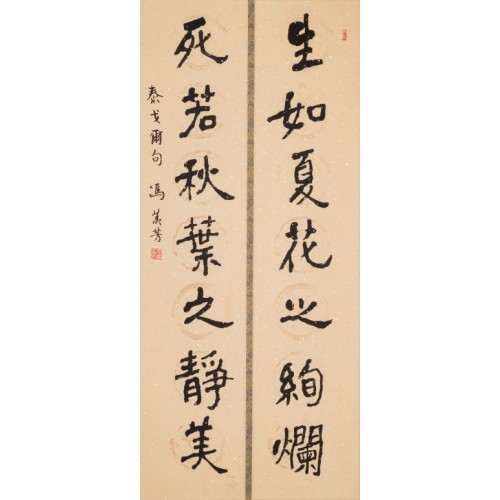 生如夏花之絢爛
死若秋葉之靜美
泰戈爾句 馮黃芳